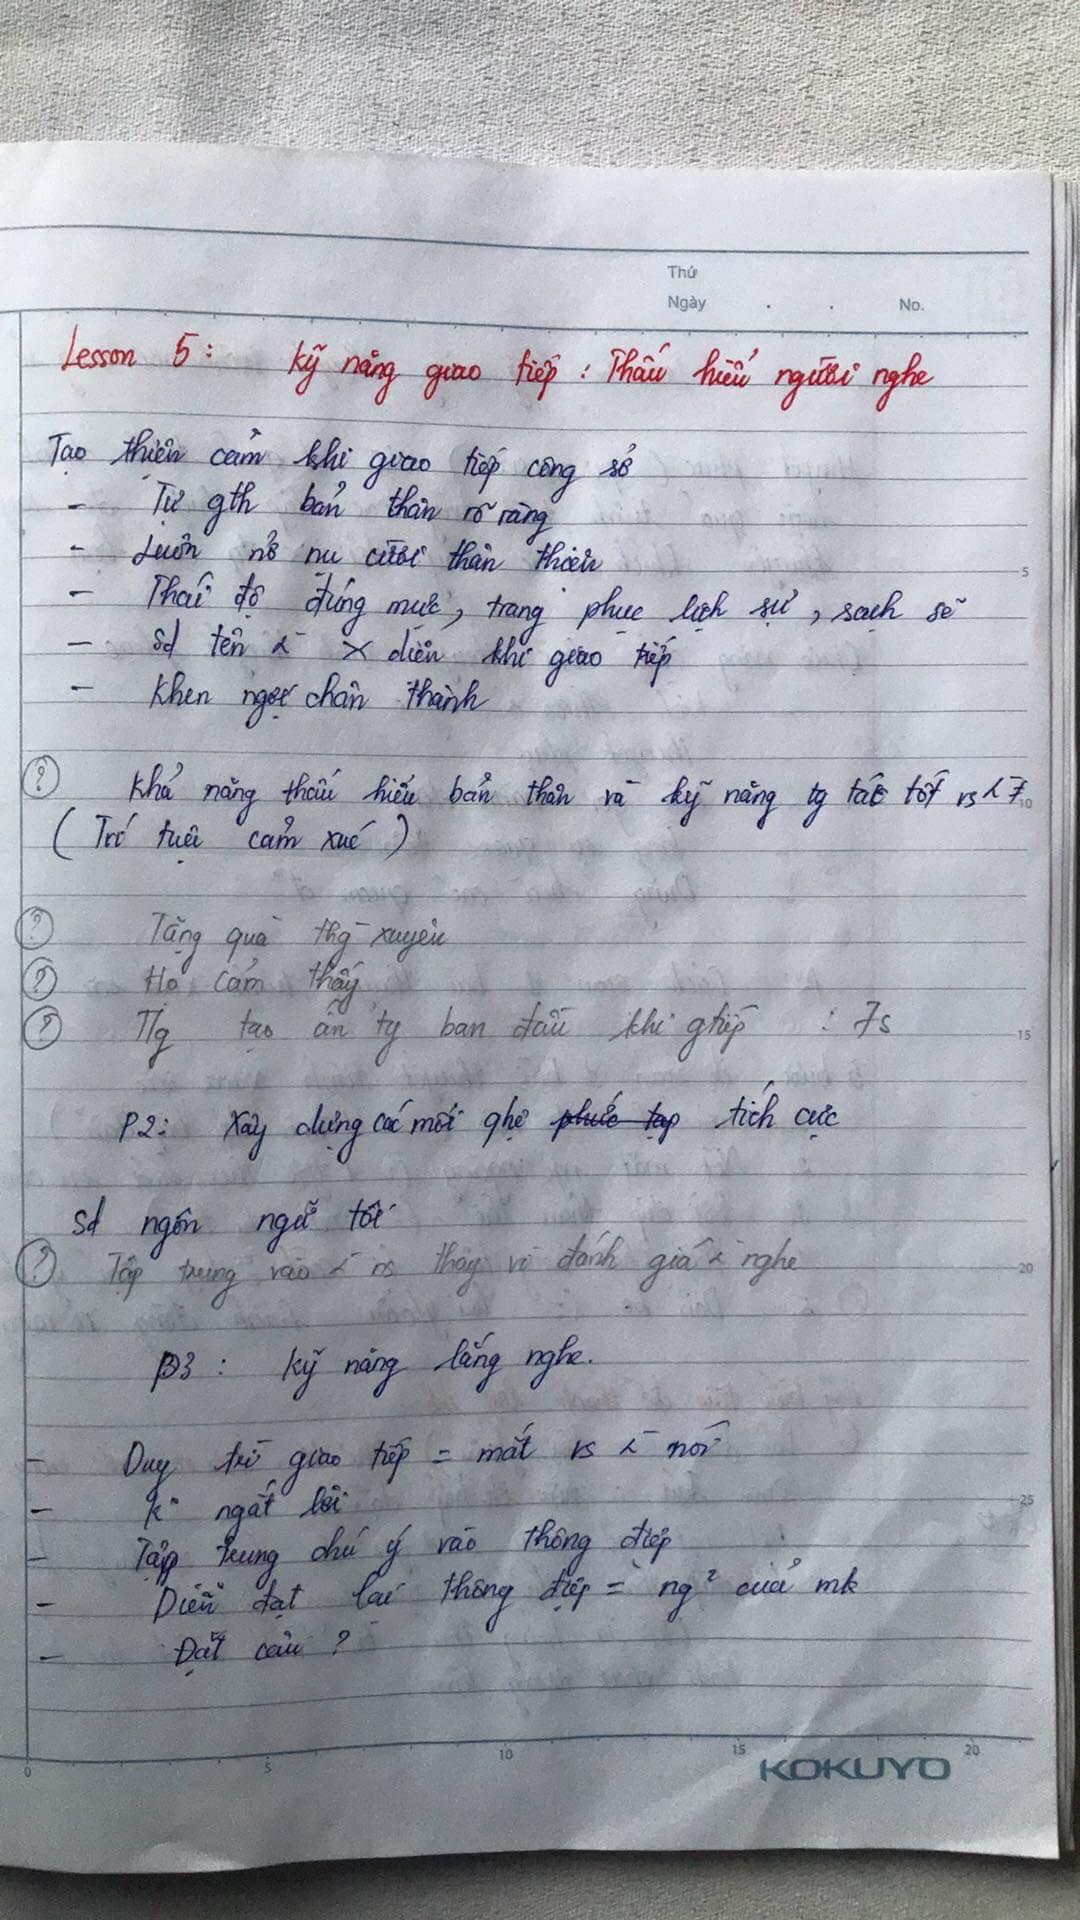 Thứ
Ngày . . No.
Lesson 5: Kỹ năng giao tiếp: Thấu hiểu người nghe
Tạo thiện cảm khi giao tiếp công sở
- Tự gth bản thân rõ ràng
- Luôn nở nụ cười thân thiện
- Thái độ đúng mực, trang phục lịch sự, sạch sẽ
- Sd tên diện khi giao tiếp
- Khen ngợi chân thành
? Khả năng thấu hiểu bản thân và kỹ năng tg tác tốt vs
(Trí tuệ cảm xúc)
? Tặng quà thg xuyên
? Họ cảm thấy
? Tg tạo ấn tg ban đầu khi gtiếp : 7s
P2: Xây dựng các mối qhệ phức tạp tích cực
Sd ngôn ngữ tốt
? Tập trung vào thay vì đánh giá nghe
P3: Kỹ năng lắng nghe.
- Duy trì giao tiếp = mắt vs nói
- k ngắt lời
- Tập trung chú ý vào thông điệp
- Diễn đạt lại thông điệp = ng² của mk
- Đặt câu ?
5
10
15
20
25
0 5 10 15 20
KOKUYO